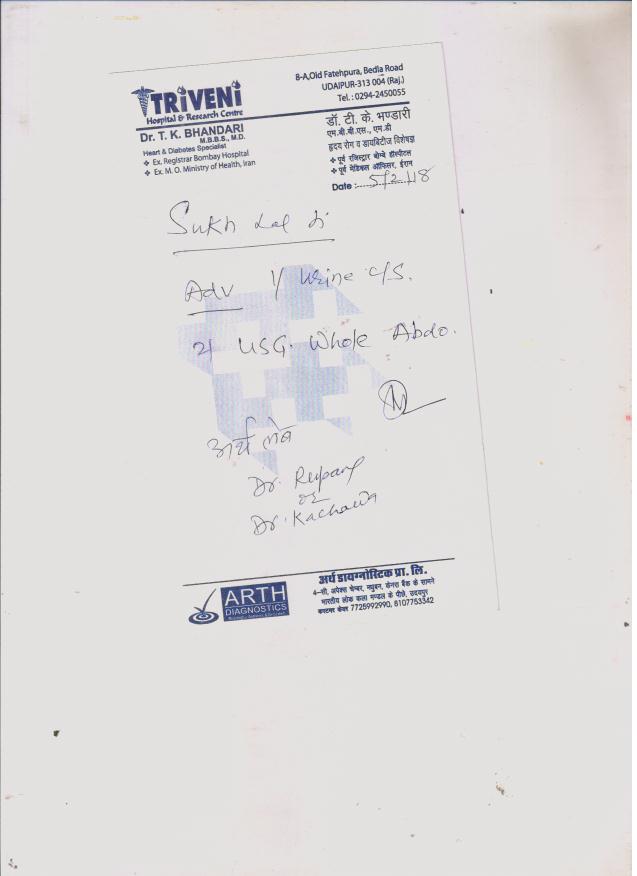 TRiVENi
Hospital & Research Centre
Dr. T. K. BHANDARI
M.B.B.S., M.D.
Heart & Diabetes Specialist
❖ Ex. Registrar Bombay Hospital
❖ Ex. M. O. Ministry of Health, Iran
8-A,Old Fatehpura, Bedla Road
UDAIPUR-313 004 (Raj.)
Tel. : 0294-2450055
डॉ. टी. के. भण्डारी
एम.बी.बी.एस., एम.डी
हृदय रोग व डायबिटीज विशेषज्ञ
❖ पूर्व रजिस्ट्रार बोम्बे हॉस्पीटल
❖ पूर्व मेडिकल ऑफिसर, ईरान
Date :- 5/2/18
Sukh Lal Ji
Adv 1/ Urine C/S.
2/ USG. Whole Abdo.
अर्थ लेब
Dr.
Dr.
ARTH
DIAGNOSTICS
अर्थ डायग्नोस्टिक प्रा. लि.
4-सी, अपेक्स चेम्बर, मधुबन, केनरा बैंक के सामने
भारतीय लोक कला मण्डल के पीछे, उदयपुर
कस्टमर केयर 7725992990, 8107753342